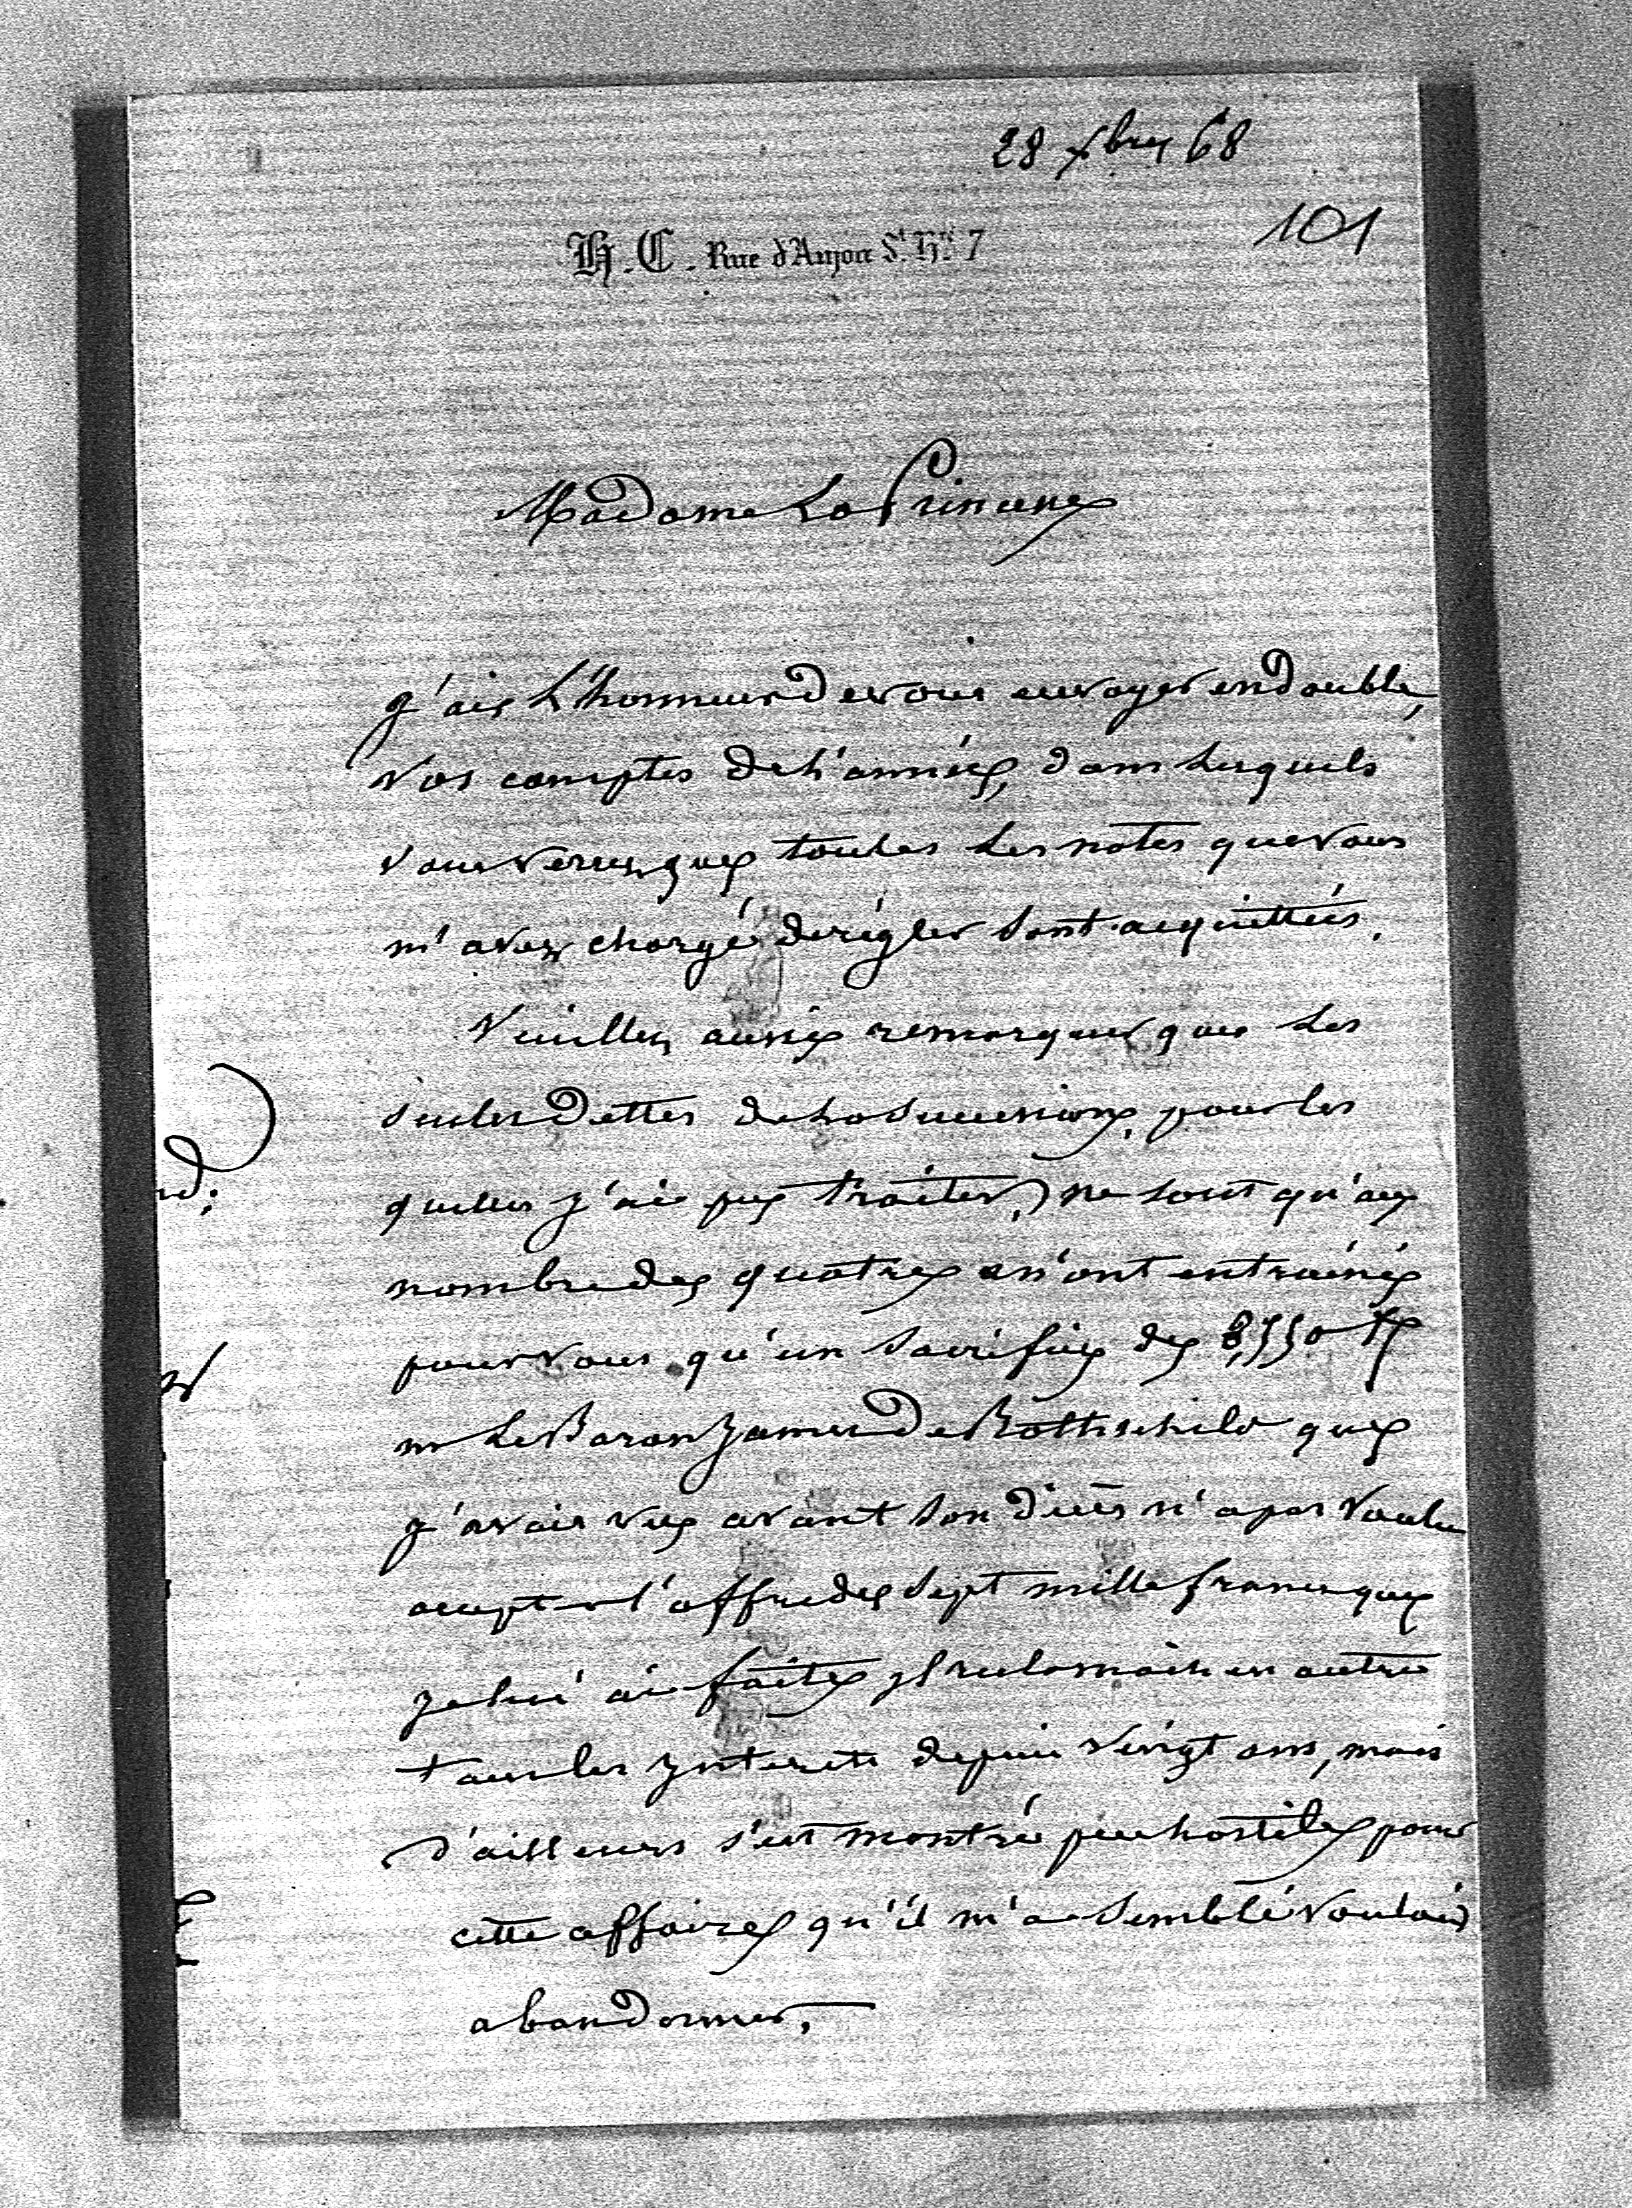 28 xbre 68
101
H. C. Rue d'Anjou St. Hré 7
Madame La Princesse
J'ai L'honneur de vous envoyer en double,
Vos comptes de L'année, dans Lesquels
vous verrez que toutes Les notes que vous
m'avez chargé de règler sont acquittées.
Veuillez aussi remarquer que Les
seules Dettes de La Succession, pour les
quelles j'ai pu traiter, ne sont qu'au
nombre de quatre & n'ont entrainé
pour vous qu'un Sacrifice de 8,550 f
mr Le Baron James De Rothschild que
j'avais vu avant son décès n'a pas voulu
accepter l'offre de Sept mille francs que
je lui ai faite, il réclamait en outre
tous les intérêts depuis vingt ans, mais
d'ailleurs s'est montré peu hostile pour
cette affaire qu'il m'a semblé vouloir
abandonner.